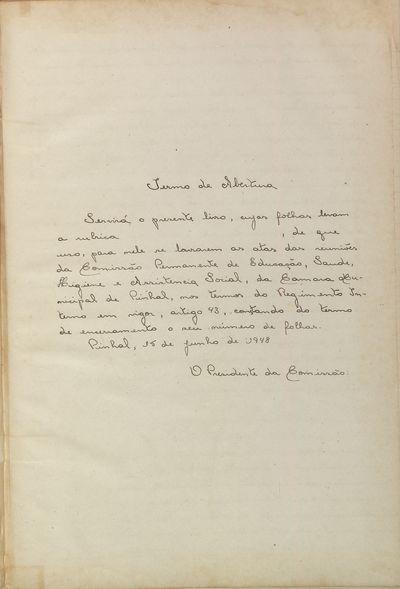 Termo de Abertura
Servirá o presente livro, cujas folhas levam
a rubrica , de que
uso, para nele se lavrarem as atas das reuniões
da Comissão Permanente de Educação, Saude,
Higiene e Assistencia Social, da Camara Mu-
nicipal de Pinhal, nos termos do Regimento In-
terno em vigor, artigo 43, constando do termo
de encerramento o seu número de folhas.
Pinhal, 15 de junho de 1948
O Presidente da Comissão: